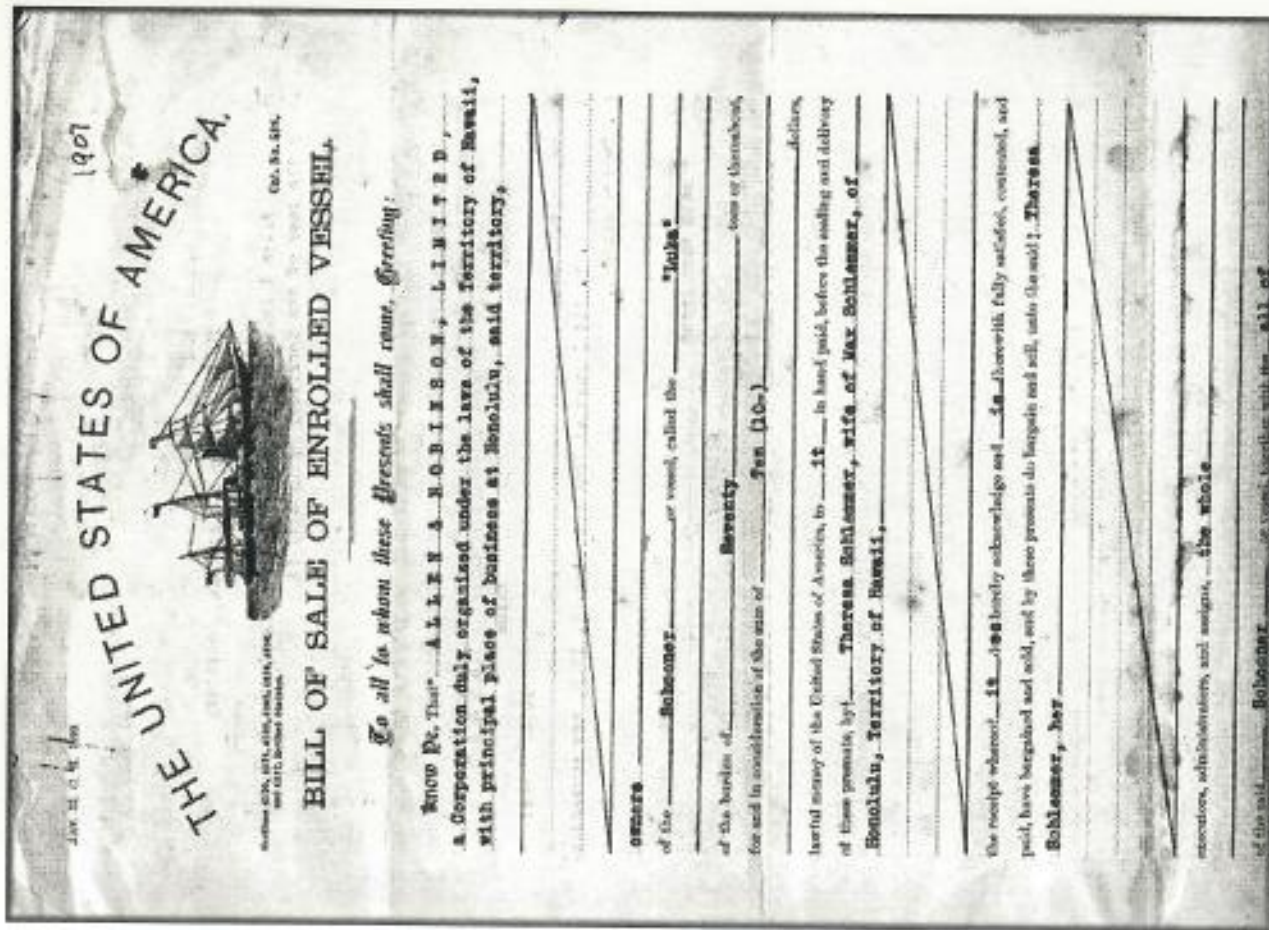 1907
THE UNITED STATES OF AMERICA.
Cat. No.
BILL OF SALE OF ENROLLED VESSEL.
To all to whom these Presents shall come, Greeting:
Know Ye, That ALLEN & ROBINSON, LIMITED,
a Corporation duly organized under the laws of the Territory of Hawaii,
with principal place of business at Honolulu, said territory,
owners
of the Schooner or vessel, called the "Luka"
of the burden of Seventy tons or thereabouts,
for and in consideration of the sum of Ten (10-)
dollars,
lawful money of the United States of America, to it in hand paid, before the sealing and delivery
of these presents, by Theresa Schlemmer, wife of Max Schlemmer, of
Honolulu, Territory of Hawaii,
the receipt whereof it does hereby acknowledge and is therewith fully satisfied, contented, and
paid, have bargained and sold, and by these presents do bargain and sell, unto the said Theresa
Schlemmer, her
executors, administrators, and assigns, the whole
of the said Schooner or vessel, together with the all of